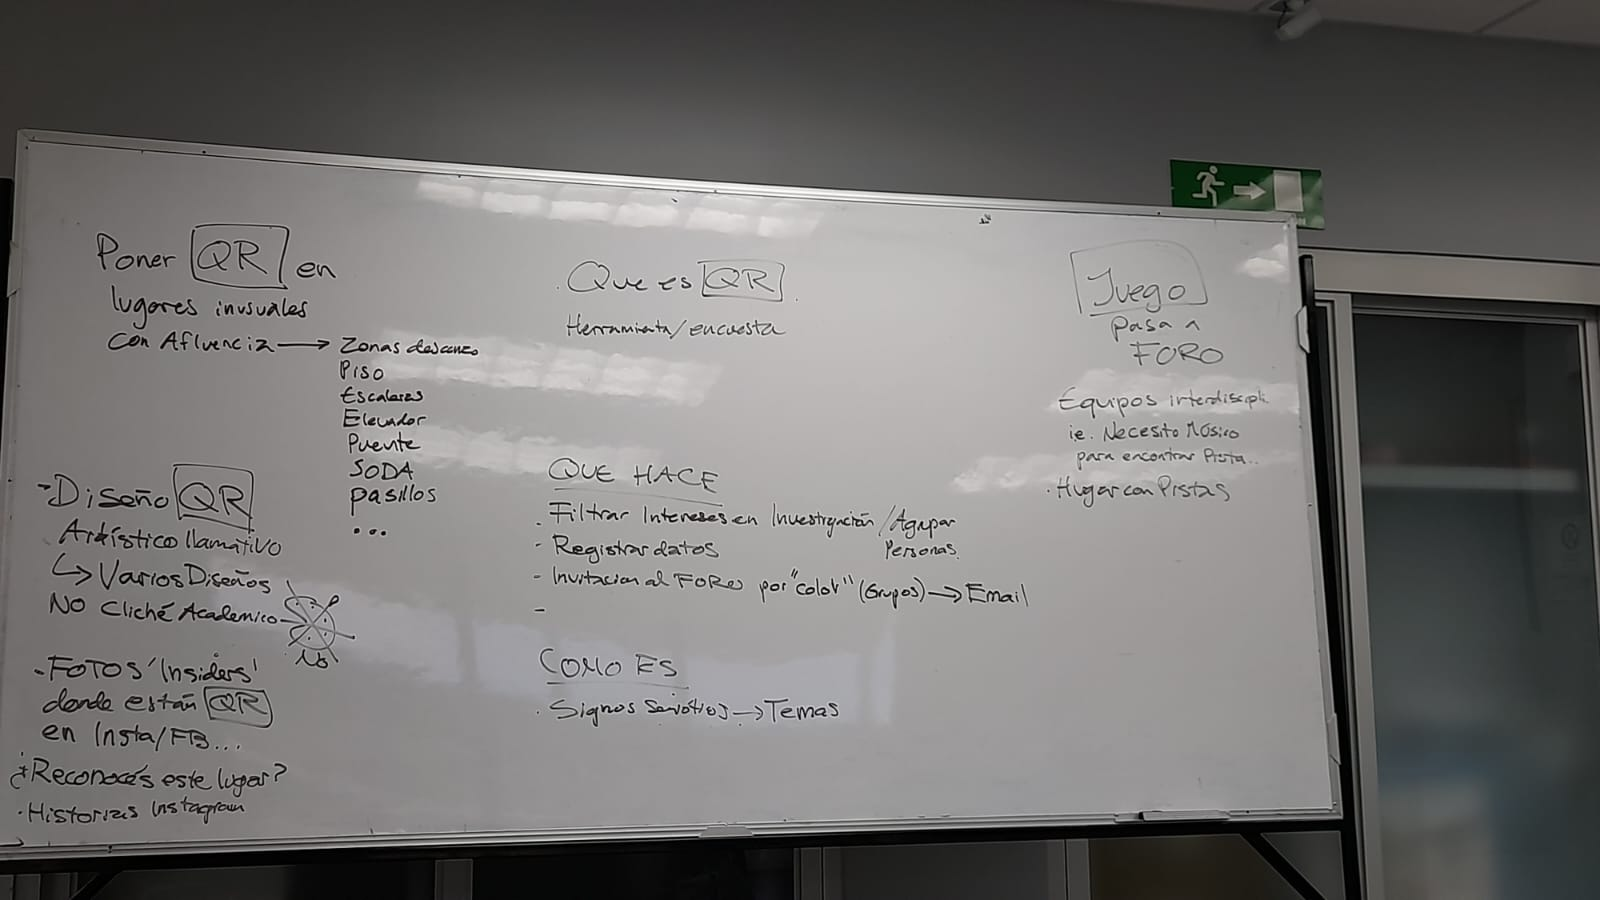 Poner QR en
lugares inusuales
con Afluencia → Zonas descanso
Piso
Escaleras
Elevador
Puente
SODA
pasillos
...
- Diseño QR
Artístico llamativo
↳ Varios Diseños
NO Cliché Academico
No
- FOTOS 'Insiders'
donde están QR
en Insta/FB...
¿Reconocés este lugar?
· Historias Instagram
Que es QR
Herramienta/encuesta
QUE HACE
. Filtrar Intereses en Investigación / Agrupar
Personas.
- Registrar datos
- Invitacion al FORO por "color" (Grupos) → Email
-
COMO ES
. Signos → Temas
Juego
pasa a
FORO
Equipos interdiscipli.
ie. Necesito Músico
para encontrar Pista..
· Hugar con Pistas